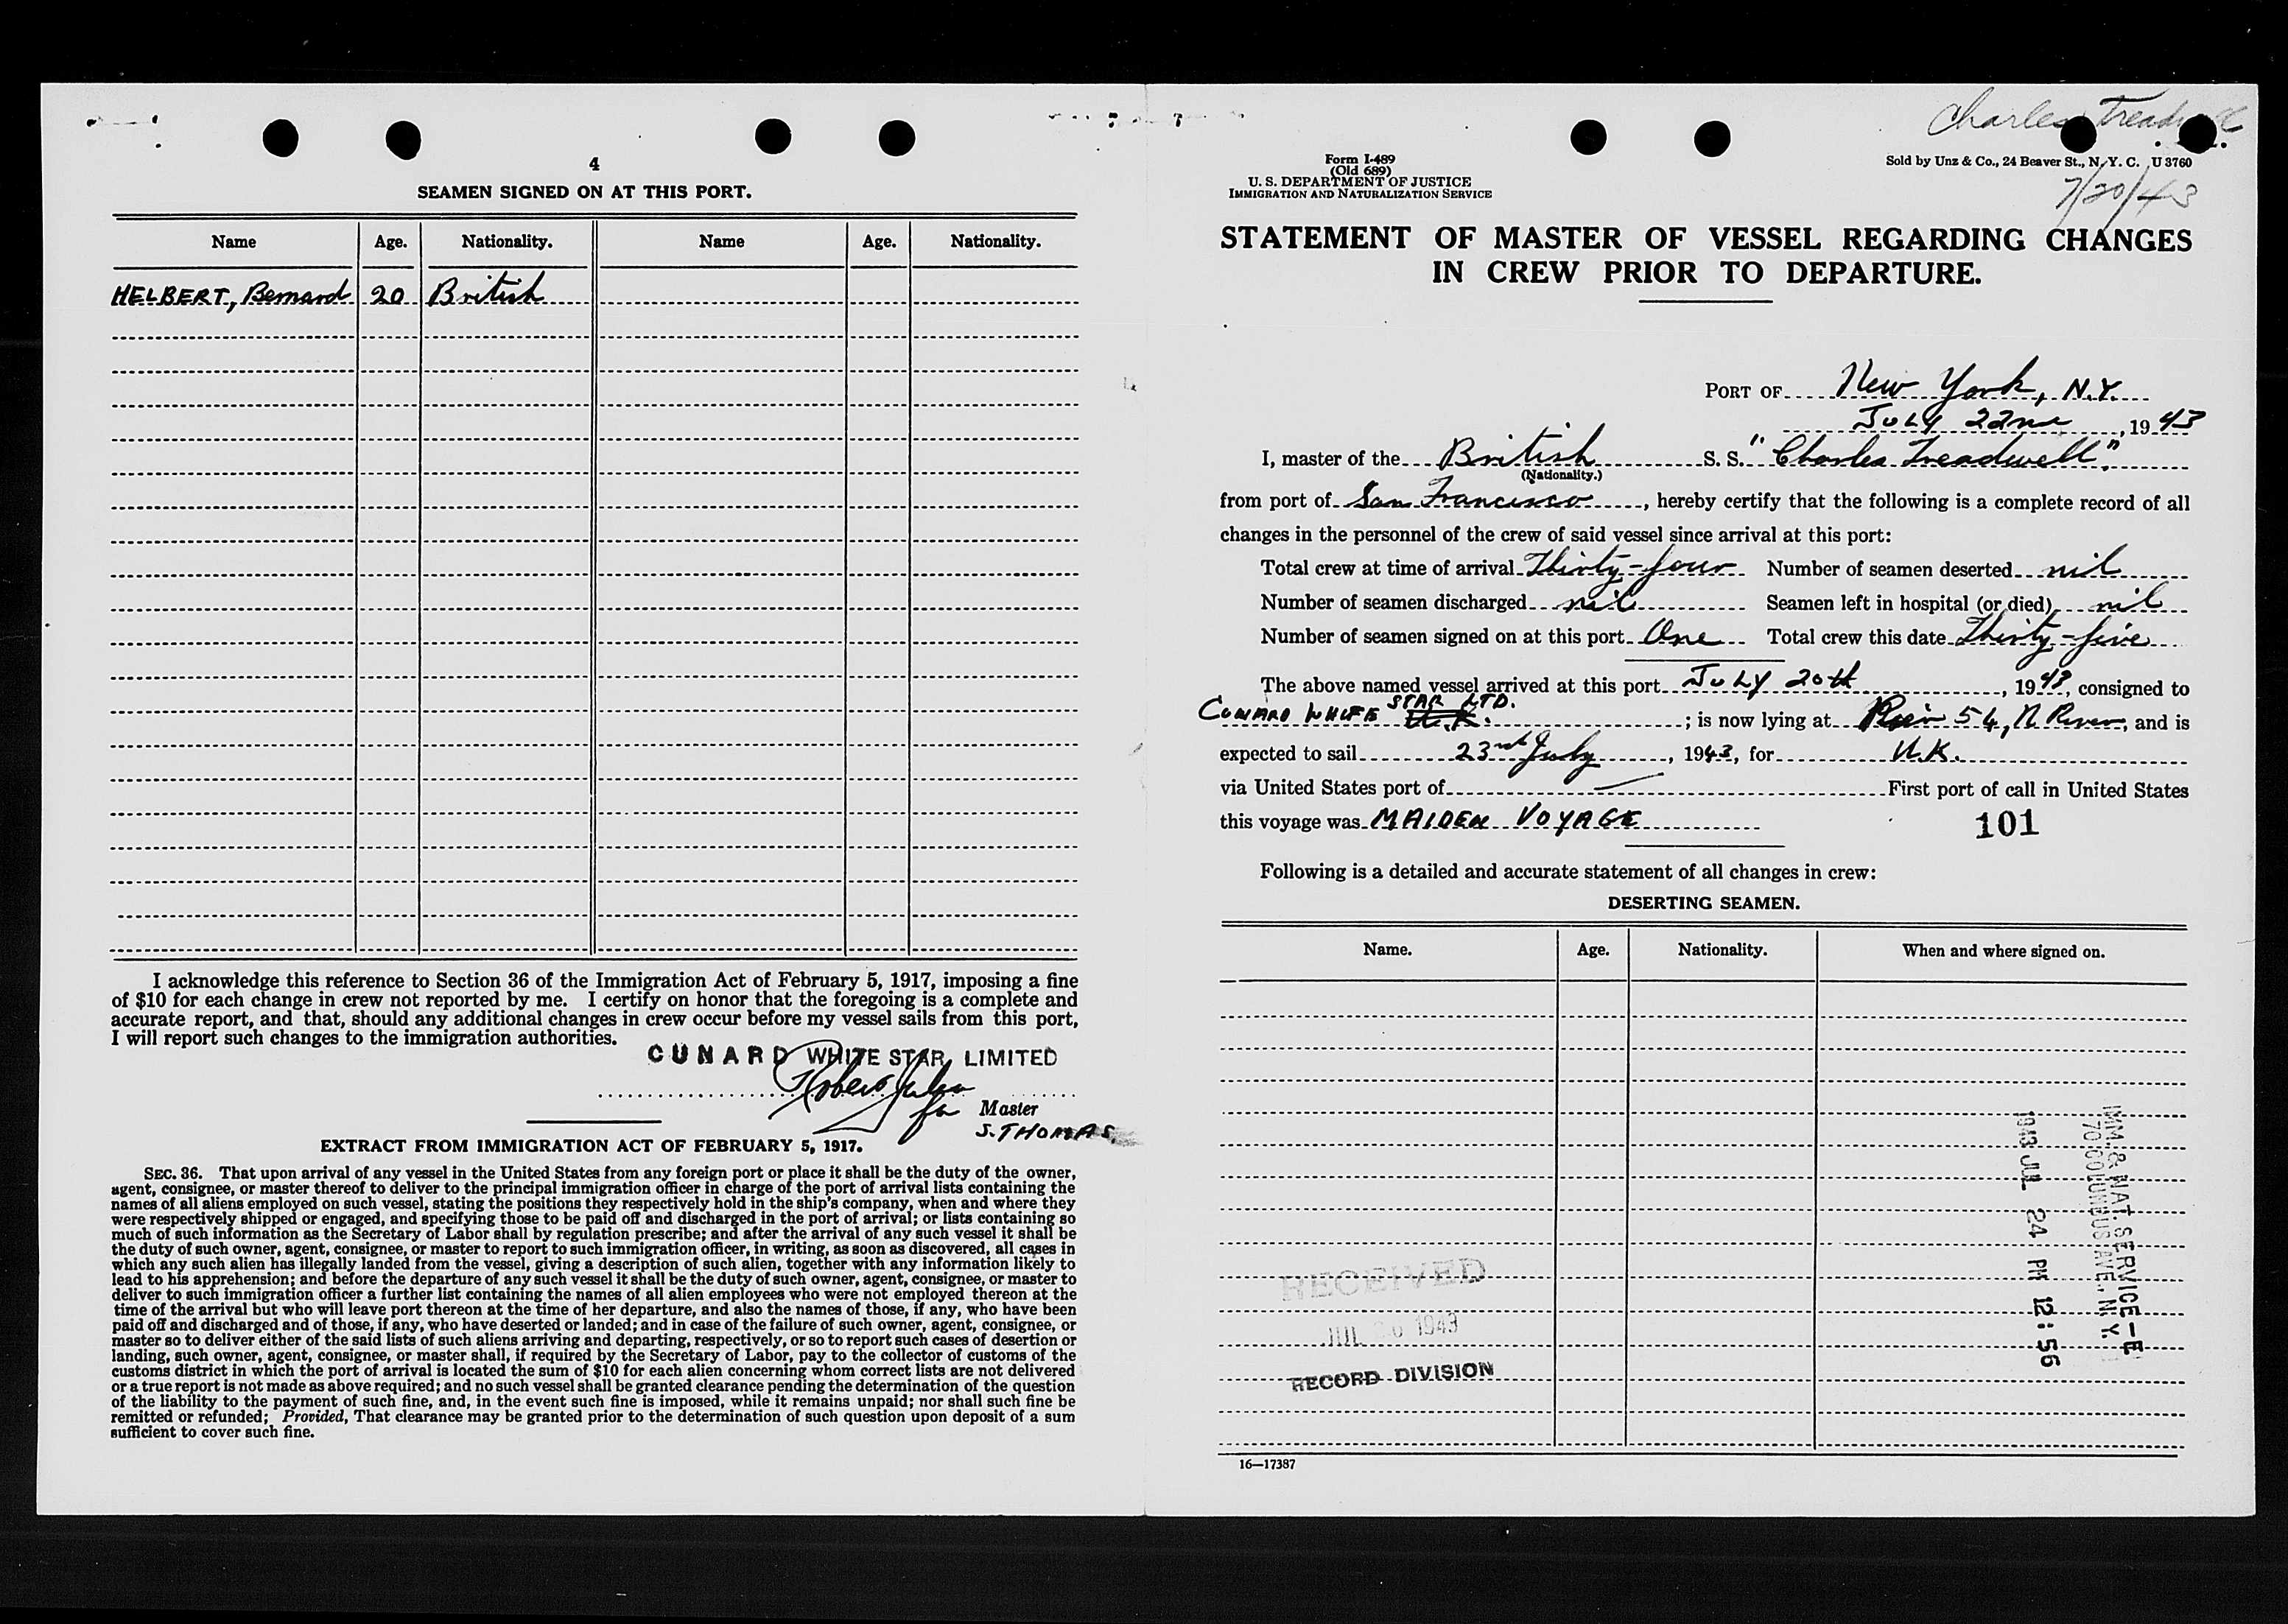 4
SEAMEN SIGNED ON AT THIS PORT.
Name Age. Nationality. Name Age. Nationality.
HELBERT, Bernard 20 British
I acknowledge this reference to Section 36 of the Immigration Act of February 5, 1917, imposing a fine
of $10 for each change in crew not reported by me. I certify on honor that the foregoing is a complete and
accurate report, and that, should any additional changes in crew occur before my vessel sails from this port,
I will report such changes to the immigration authorities.
CUNARD WHITE STAR LIMITED
for Master
S. THOMAS
EXTRACT FROM IMMIGRATION ACT OF FEBRUARY 5, 1917.
SEC. 36. That upon arrival of any vessel in the United States from any foreign port or place it shall be the duty of the owner,
agent, consignee, or master thereof to deliver to the principal immigration officer in charge of the port of arrival lists containing the
names of all aliens employed on such vessel, stating the positions they respectively hold in the ship's company, when and where they
were respectively shipped or engaged, and specifying those to be paid off and discharged in the port of arrival; or lists containing so
much of such information as the Secretary of Labor shall by regulation prescribe; and after the arrival of any such vessel it shall be
the duty of such owner, agent, consignee, or master to report to such immigration officer, in writing, as soon as discovered, all cases in
which any such alien has illegally landed from the vessel, giving a description of such alien, together with any information likely to
lead to his apprehension; and before the departure of any such vessel it shall be the duty of such owner, agent, consignee, or master to
deliver to such immigration officer a further list containing the names of all alien employees who were not employed thereon at the
time of the arrival but who will leave port thereon at the time of her departure, and also the names of those, if any, who have been
paid off and discharged and of those, if any, who have deserted or landed; and in case of the failure of such owner, agent, consignee, or
master so to deliver either of the said lists of such aliens arriving and departing, respectively, or so to report such cases of desertion or
landing, such owner, agent, consignee, or master shall, if required by the Secretary of Labor, pay to the collector of customs of the
customs district in which the port of arrival is located the sum of $10 for each alien concerning whom correct lists are not delivered
or a true report is not made as above required; and no such vessel shall be granted clearance pending the determination of the question
of the liability to the payment of such fine, and, in the event such fine is imposed, while it remains unpaid; nor shall such fine be
remitted or refunded; Provided, That clearance may be granted prior to the determination of such question upon deposit of a sum
sufficient to cover such fine.
Charles Treadwell
Form I-489
(Old 689)
U. S. DEPARTMENT OF JUSTICE
IMMIGRATION AND NATURALIZATION SERVICE
Sold by Unz & Co., 24 Beaver St., N. Y. C. U 3760
7/20/43
STATEMENT OF MASTER OF VESSEL REGARDING CHANGES
IN CREW PRIOR TO DEPARTURE.
PORT OF New York, N.Y.
July 22nd, 1943
I, master of the British S. S. "Charles Treadwell"
(Nationality.)
from port of San Francisco, hereby certify that the following is a complete record of all
changes in the personnel of the crew of said vessel since arrival at this port:
Total crew at time of arrival Thirty-four Number of seamen deserted nil
Number of seamen discharged nil Seamen left in hospital (or died) nil
Number of seamen signed on at this port One Total crew this date Thirty-five
The above named vessel arrived at this port July 20th, 1943, consigned to
CUNARD WHITE STAR LTD. U.K.; is now lying at Pier 54, N River, and is
expected to sail 23rd July, 1943, for U.K.
via United States port of — First port of call in United States
this voyage was MAIDEN VOYAGE
101
Following is a detailed and accurate statement of all changes in crew:
DESERTING SEAMEN.
Name. Age. Nationality. When and where signed on.
IMM. & NAT. SERVICE-E
70 COLUMBUS AVE. N.Y.
1943 JUL 24 PM 12:56
RECEIVED
JUL 1943
RECORD DIVISION
16—17387